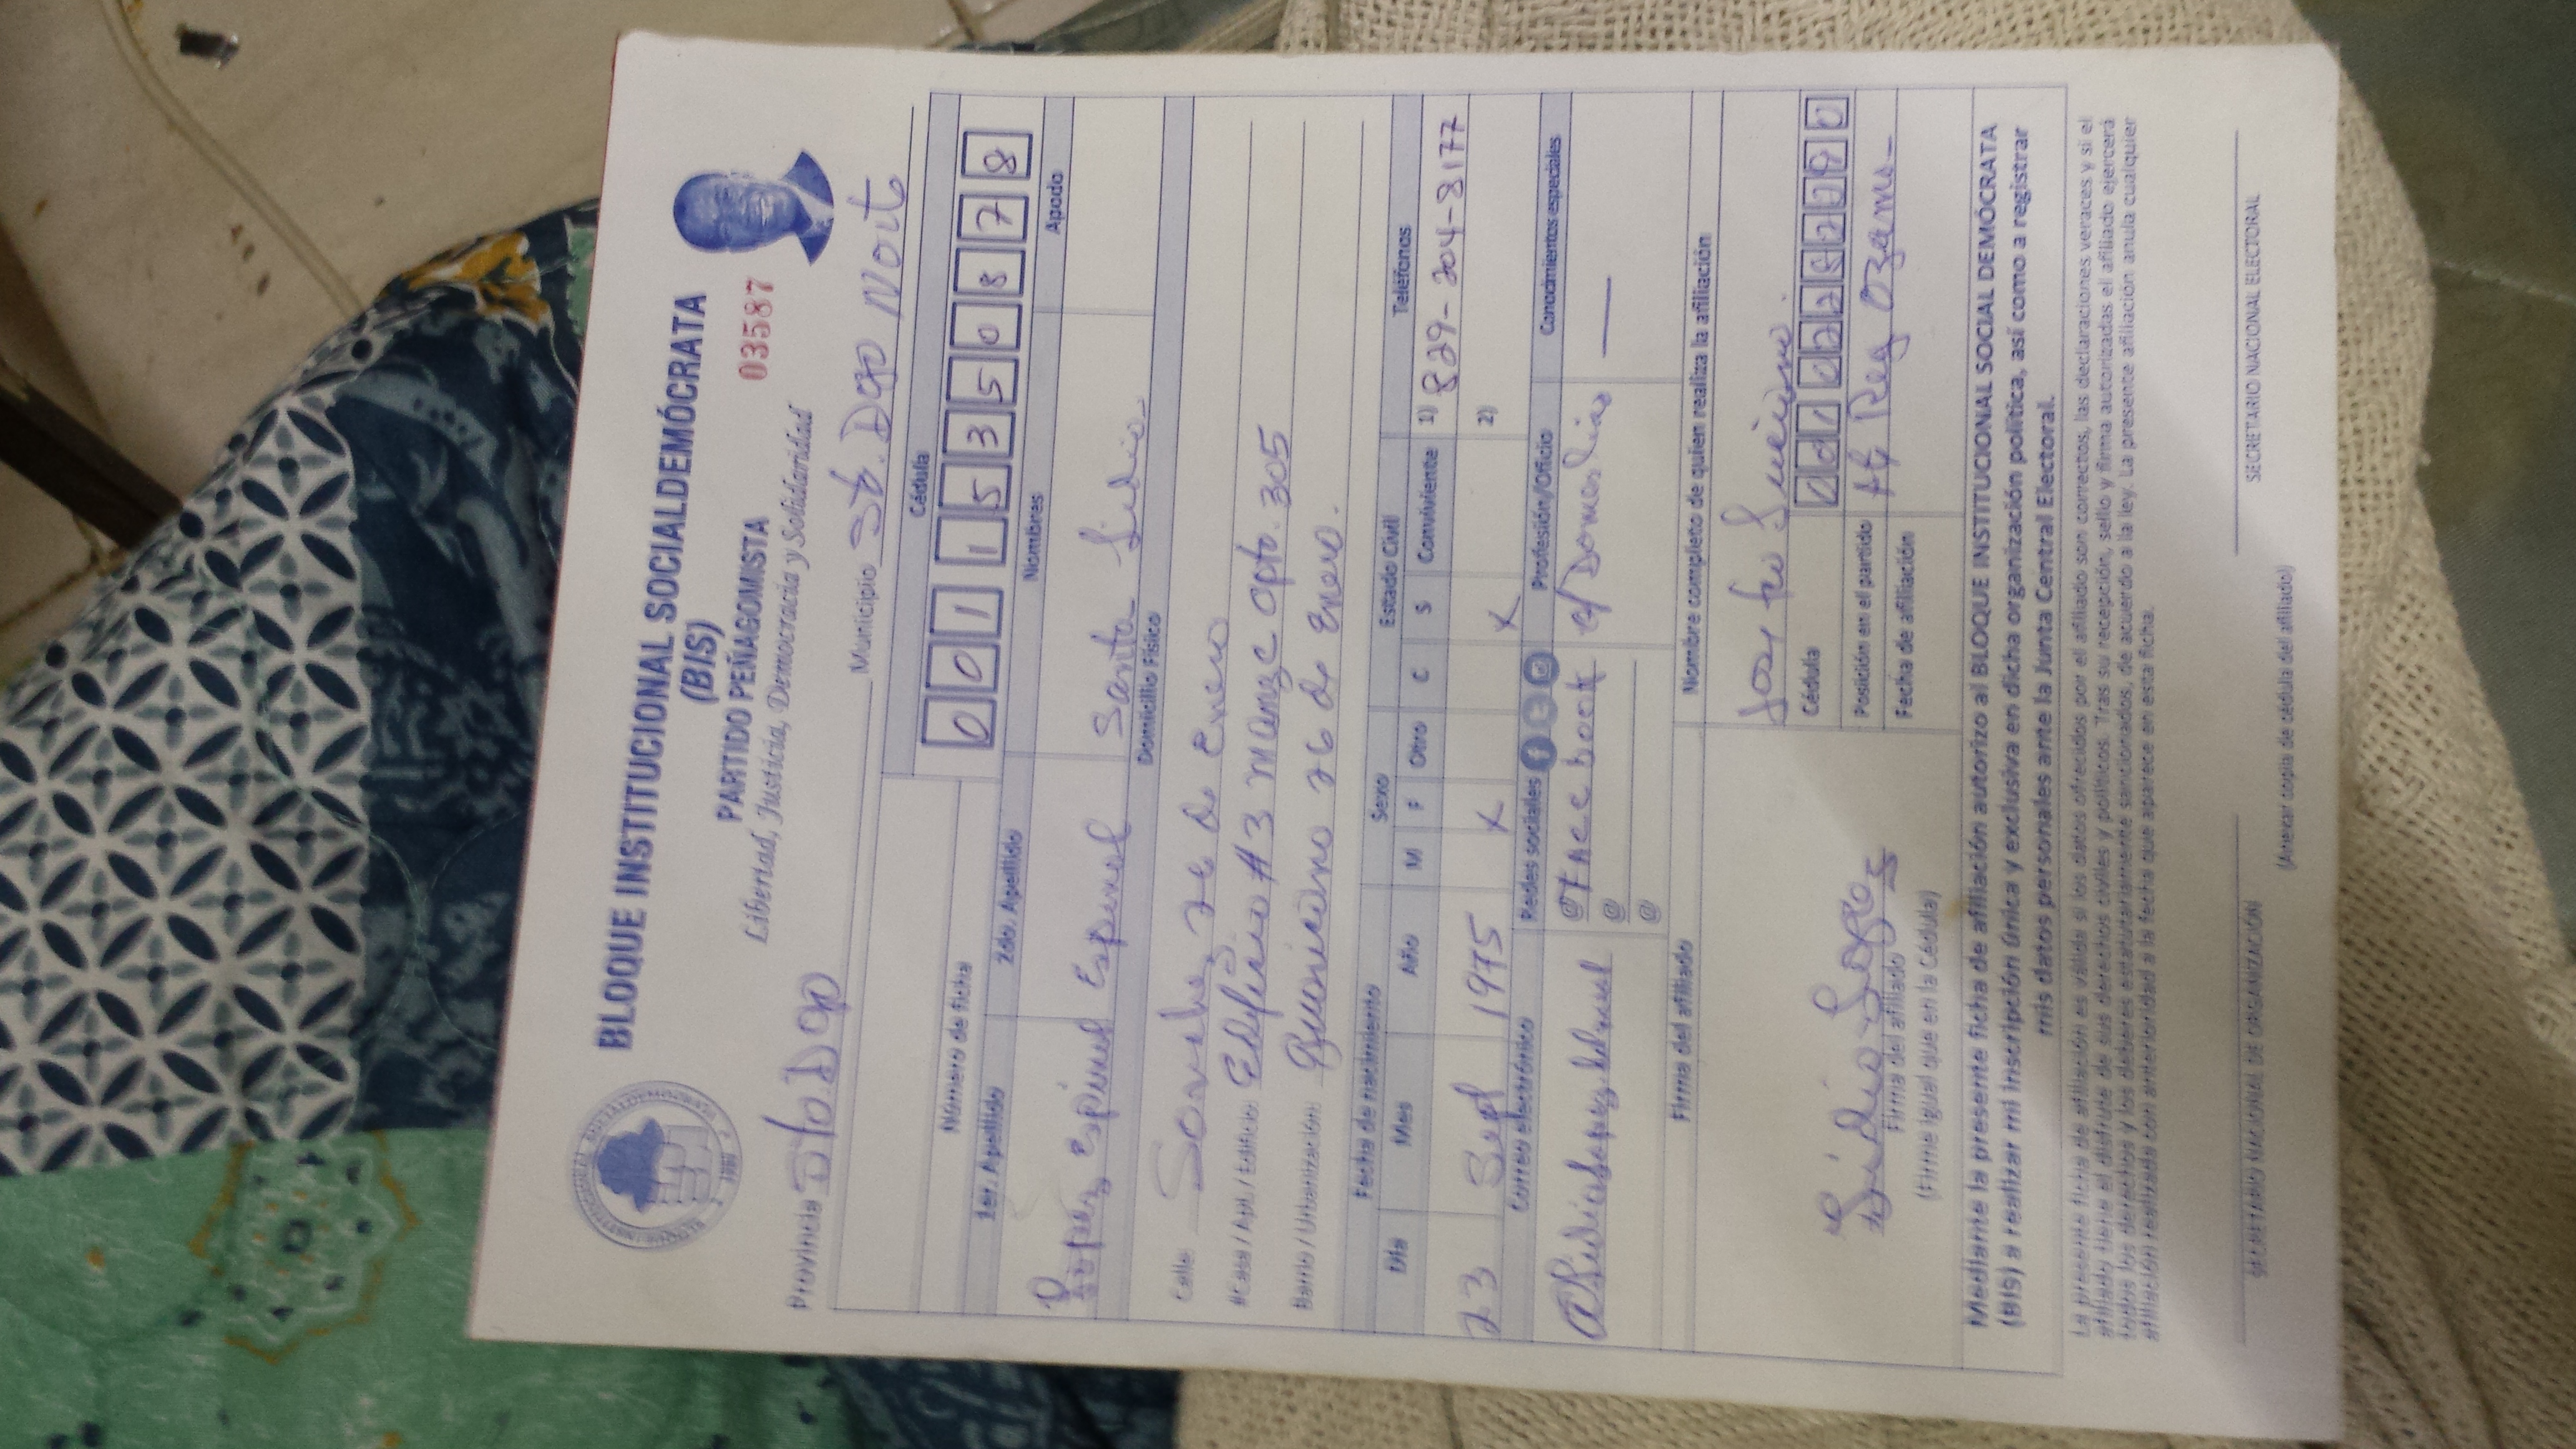 BLOQUE INSTITUCIONAL SOCIALDEMÓCRATA
(BIS)
PARTIDO PEÑAGOMISTA
Libertad, Justicia, Democracia y Solidaridad
03587
Provincia Sto. Dgo Municipio St. Dgo Nort
Número de ficha Cédula
0 0 1 1 5 3 5 0 8 7 8
1er. Apellido 2do. Apellido Nombres Apodo
Lopez Espinal Espinal Santa Lidia
Domicilio Físico
Calle Sanchez 26 de Enero
#Casa / Apt. / Edificio: Edificio #3 Manz C apto. 305
Barrio / Urbanización: 26 de Enero.
Fecha de nacimiento Sexo Estado Civil Teléfonos
Día Mes Año M F Otro C S Conviviente 1) 829-204-8177
23 Sept 1975 X X 2)
Correo electrónico Redes sociales Profesión/Oficio Conocimientos especiales
@ Facebook Q/Domestico —
@
@
Firma del afiliado Nombre completo de quien realiza la afiliación
Jose Fco Luciano
Cédula
Posición en el partido
Fecha de afiliación
Firma del afiliado
(Firme igual que en la Cédula)
Mediante la presente ficha de afiliación autorizo al BLOQUE INSTITUCIONAL SOCIAL DEMÓCRATA
(BIS) a realizar mi inscripción única y exclusiva en dicha organización política, así como a registrar
mis datos personales ante la Junta Central Electoral.
La presente ficha de afiliación es válida si los datos ofrecidos por el afiliado son correctos, las declaraciones veraces y si el
afiliado tiene el disfrute de sus derechos civiles y políticos. Tras su recepción, sello y firma autorizadas el afiliado ejercerá
todos los derechos y los deberes estatutariamente sancionados, de acuerdo a la ley. La presente afiliación anula cualquier
afiliación realizada con anterioridad a la fecha que aparece en esta ficha.
SECRETARIO NACIONAL DE ORGANIZACIÓN SECRETARIO NACIONAL ELECTORAL
(Anexar copia de cédula del afiliado)